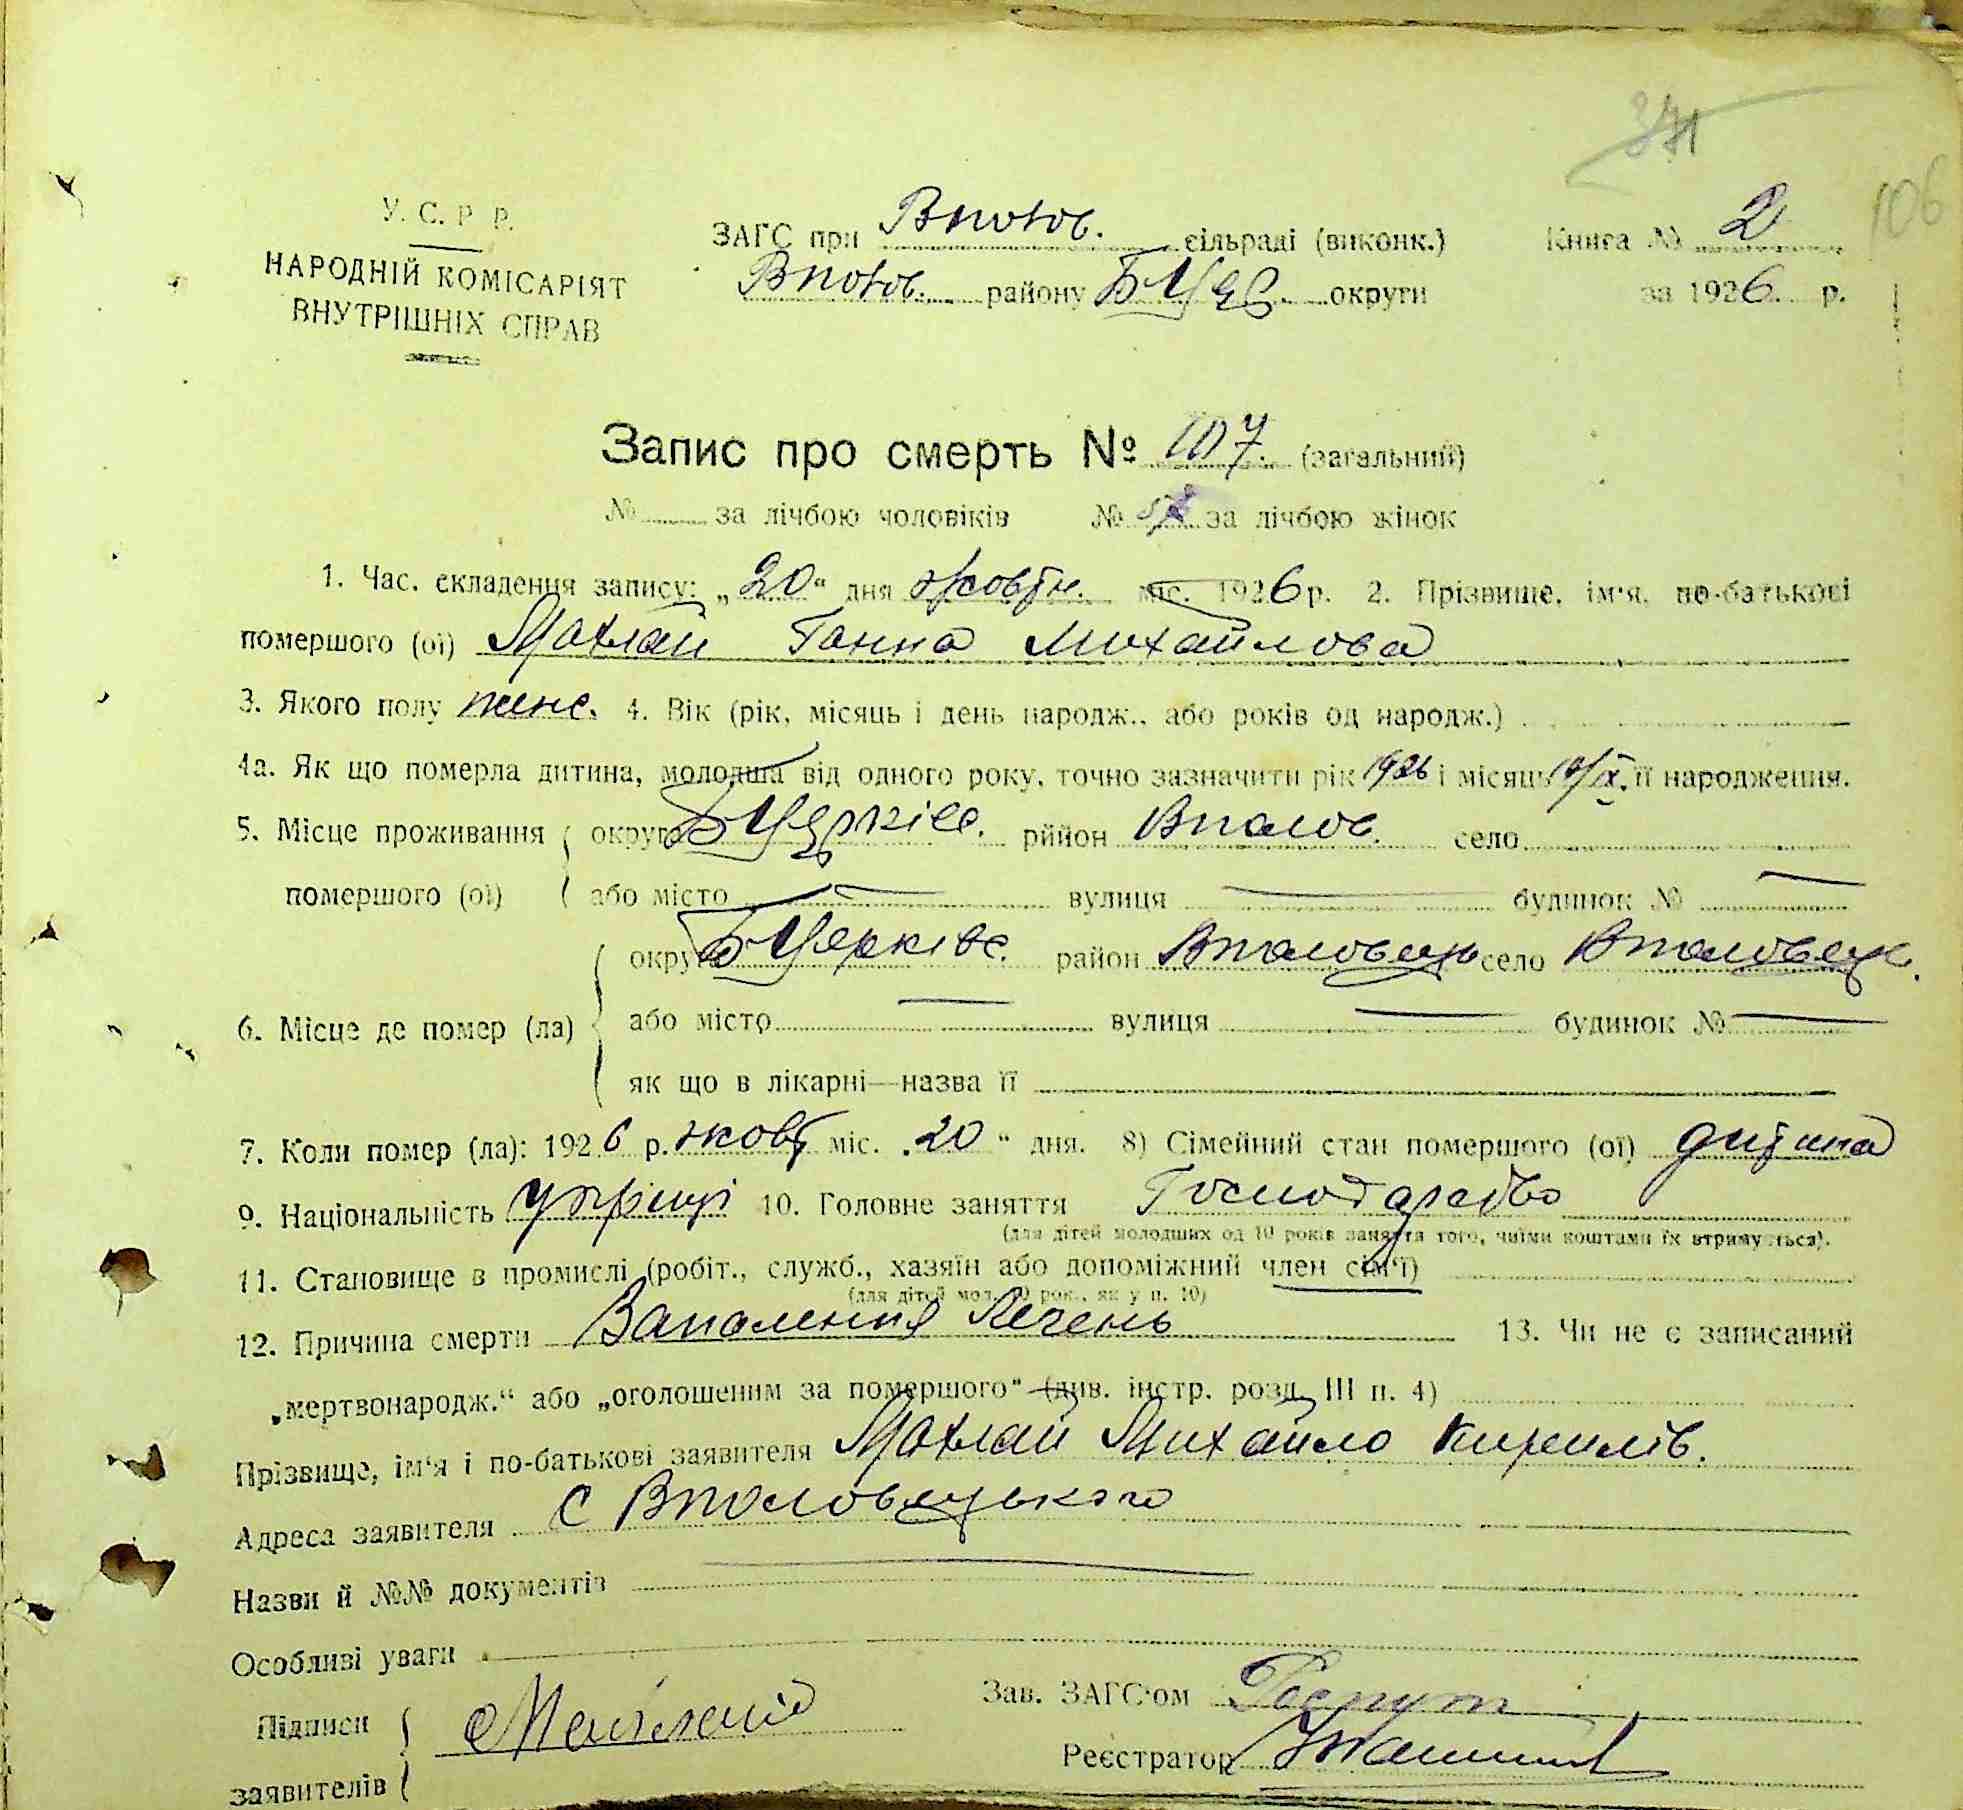 371
106
У. С. Р Р.
НАРОДНІЙ КОМІСАРІЯТ
ВНУТРІШНІХ СПРАВ
ЗАГС при Вполов. сільраді (виконк.)
Вполов. району БЦер. округи
Книга № 2
за 1926. р.
Запис про смерть № 107. (загальний)
№ за лічбою чоловіків № за лічбою жінок
1. Час. складення запису: „20" дня жовтн. міс. 1926 р. 2. Прізвище, ім'я, по-батькові
помершого (ої) Махлай Ганна Михайлова
3. Якого полу жінс. 4. Вік (рік, місяць і день народж., або років од народж.)
4а. Як що померла дитина, молодша від одного року, точно зазначити рік 1926 і місяць її народження.
5. Місце проживання округа БЦерківс. рййон Вполов. село
помершого (ої) або місто вулиця будинок №
округа БЦерківс. район Вполовець село Вполовецк.
6. Місце де помер (ла) або місто вулиця будинок №
як що в лікарні—назва її
7. Коли помер (ла): 1926 р. жовт міс. 20 " дня. 8) Сімейний стан помершого (ої) дитина
9. Національність 10. Головне заняття Господарство
(для дітей молодших од 10 років заняття того, чиїми коштами їх втримується).
11. Становище в промислі (робіт., служб., хазяїн або допоміжний член сім'ї)
(для дітей мол. 10 рок., як у п. 10)
12. Причина смерти Запалення Печень 13. Чи не є записаний
„мертвонародж." або „оголошеним за помершого" (див. інстр. розд. III п. 4)
Прізвище, ім'я і по-батькові заявителя Махлай Михайло Кирилів.
Адреса заявителя С Вполовецького
Назви й №№ документів
Особливі уваги
Підписи
заявителів
Зав. ЗАГС'ом
Реєстратор